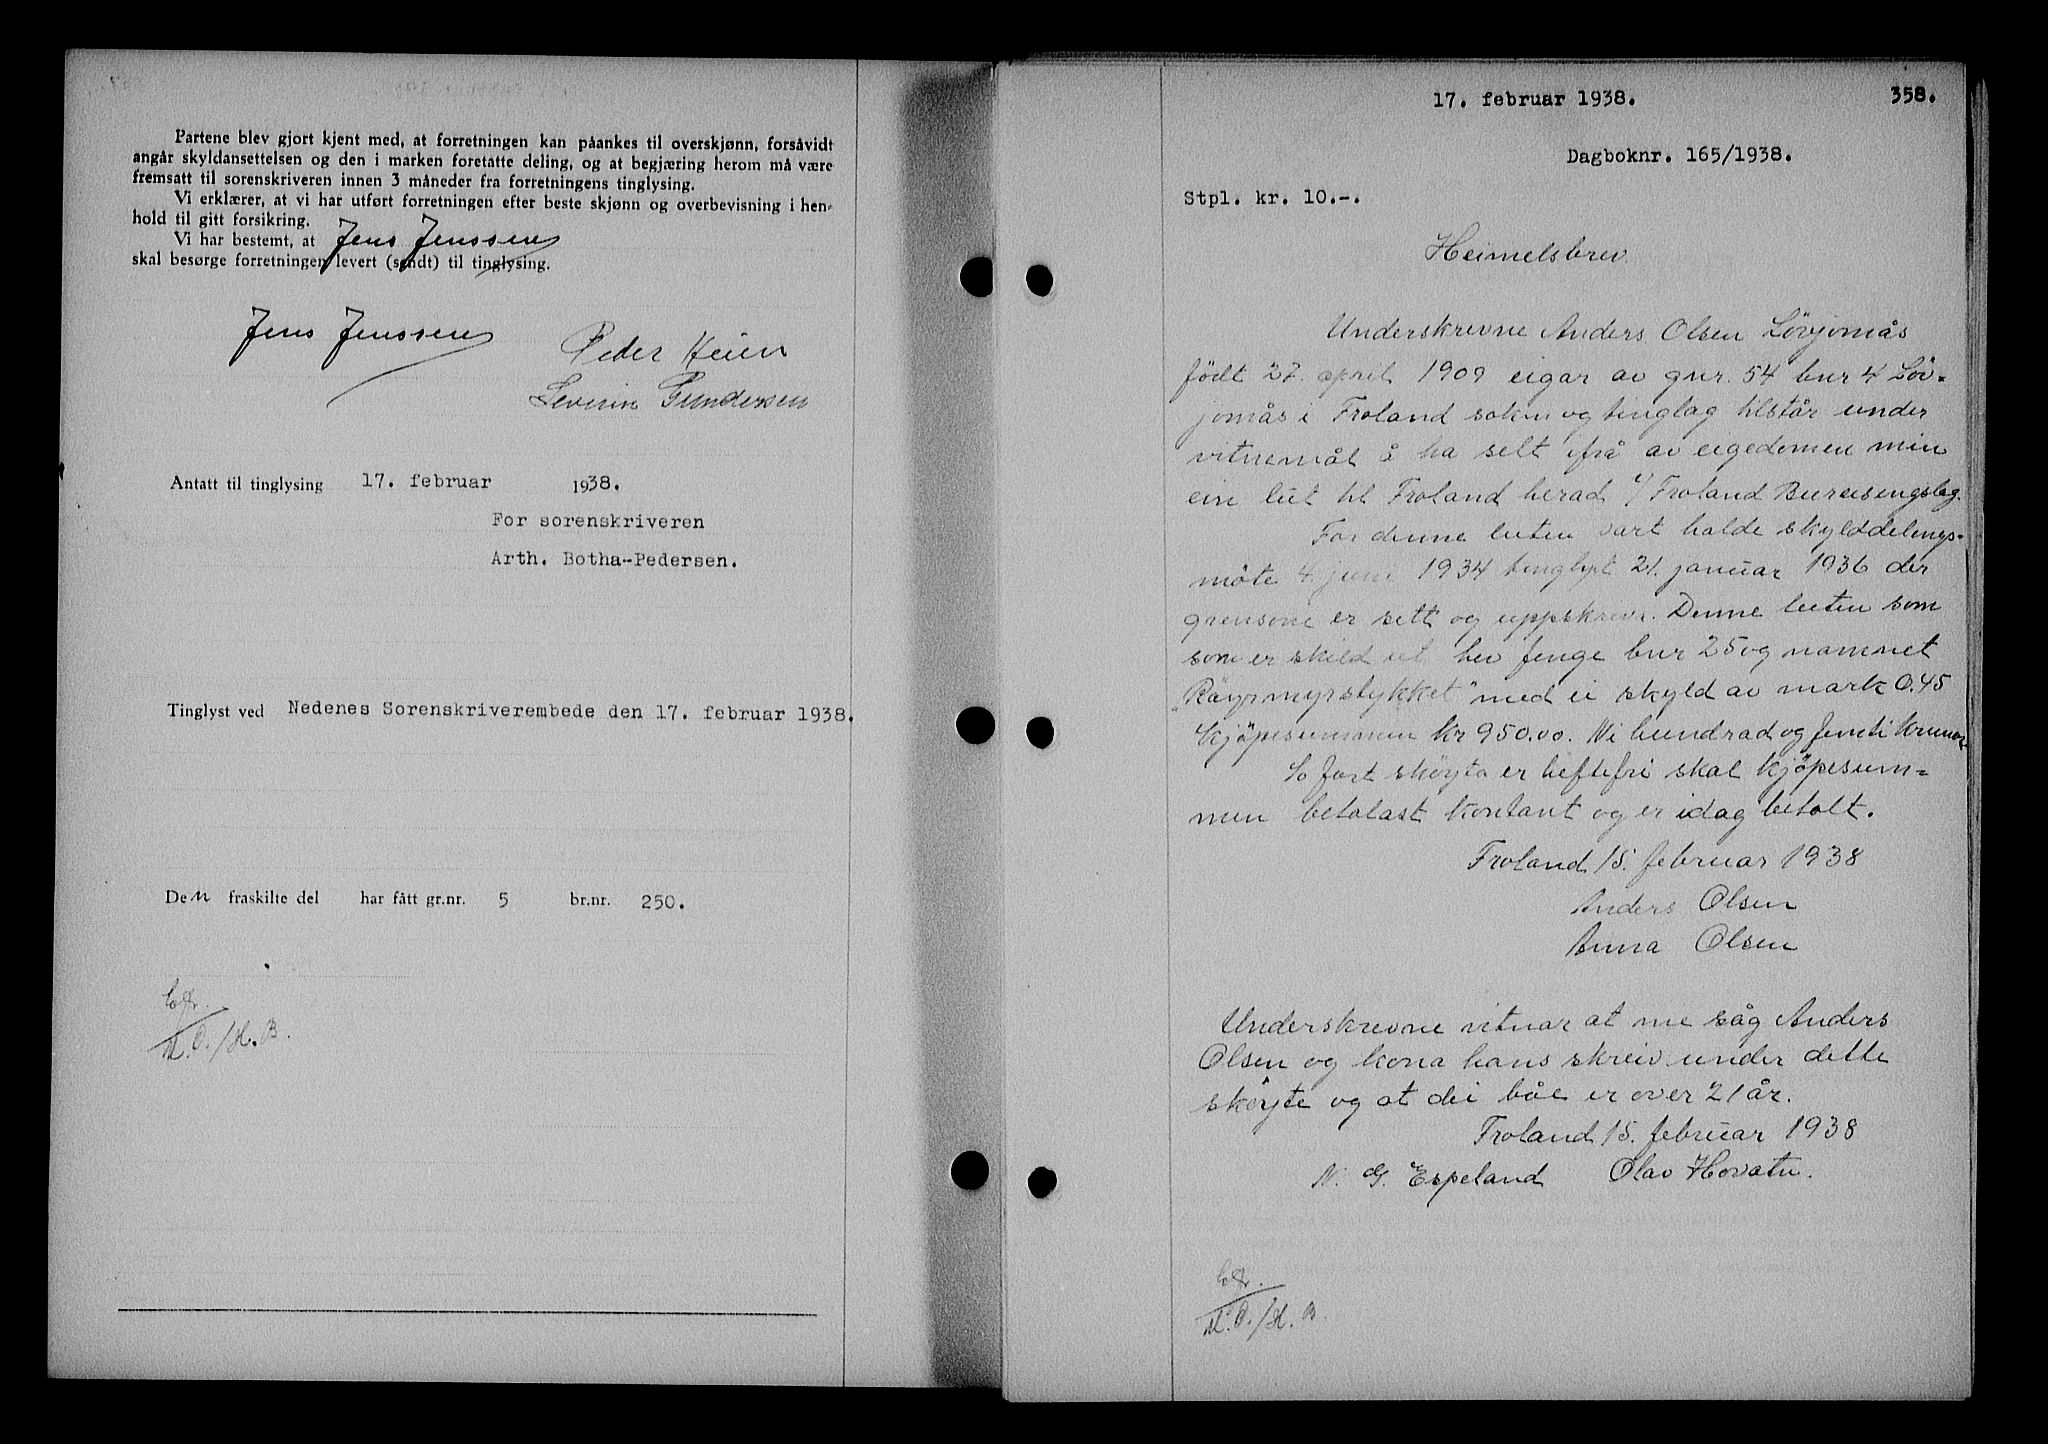 Partene blev gjort kjent med, at forretningen kan påankes til overskjønn, forsåvidt
angår skyldansettelsen og den i marken foretatte deling, og at begjæring herom må være
fremsatt til sorenskriveren innen 3 måneder fra forretningens tinglysing.
Vi erklærer, at vi har utført forretningen efter beste skjønn og overbevisning i hen-
hold til gitt forsikring.
Vi har bestemt, at Jens Jenssen
skal besørge forretningen levert (sendt) til tinglysing.
Jens Jenssen
Peder Heien
Severin Gundersen
Antatt til tinglysing 17. februar 1938.
For sorenskriveren
Arth. Botha-Pedersen.
Tinglyst ved Nedenes Sorenskriverembede den 17. februar 1938.
Den fraskilte del har fått gr.nr. 5 br.nr. 250.
M.O./H.B.
17. februar 1938. 358.
Dagboknr. 165/1938.
Stpl. kr. 10.-.
Heimelsbrev.
Underskrevne Anders Olsen Lövjomås
födt 27. april 1909 eigar av gnr. 54 bnr 4 Löv-
jomås i Froland sokn og tinglag tilstår under
vitnemål å ha selt ifrå av eigedomen min
ein lut til Froland herad v/ Froland Bureisingslag.
For denne luten vart halde skylddelings-
möte 4. juni 1934 tinglyst 21. januar 1936 der
grensone er sett og uppskrivi. Denne luten som
som er skild ut hev fenge bnr 25 og namnet
myrstykket" med ei skyld av mark 0.45
Kjöpesummen kr 950.00. Ni hundrad og femti kroner
So fort sköyta er heftefri skal kjöpesum-
men betalast kontant og er idag betalt.
Froland 15. februar 1938
Anders Olsen
Anna Olsen
Underskrevne vitnar at me såg Anders
Olsen og kona hans skreiv under dette
sköyte og at dei båe er over 21 år.
Froland 15. februar 1938
N. G. Espeland Olav Hovatn.
M.O./H.B.